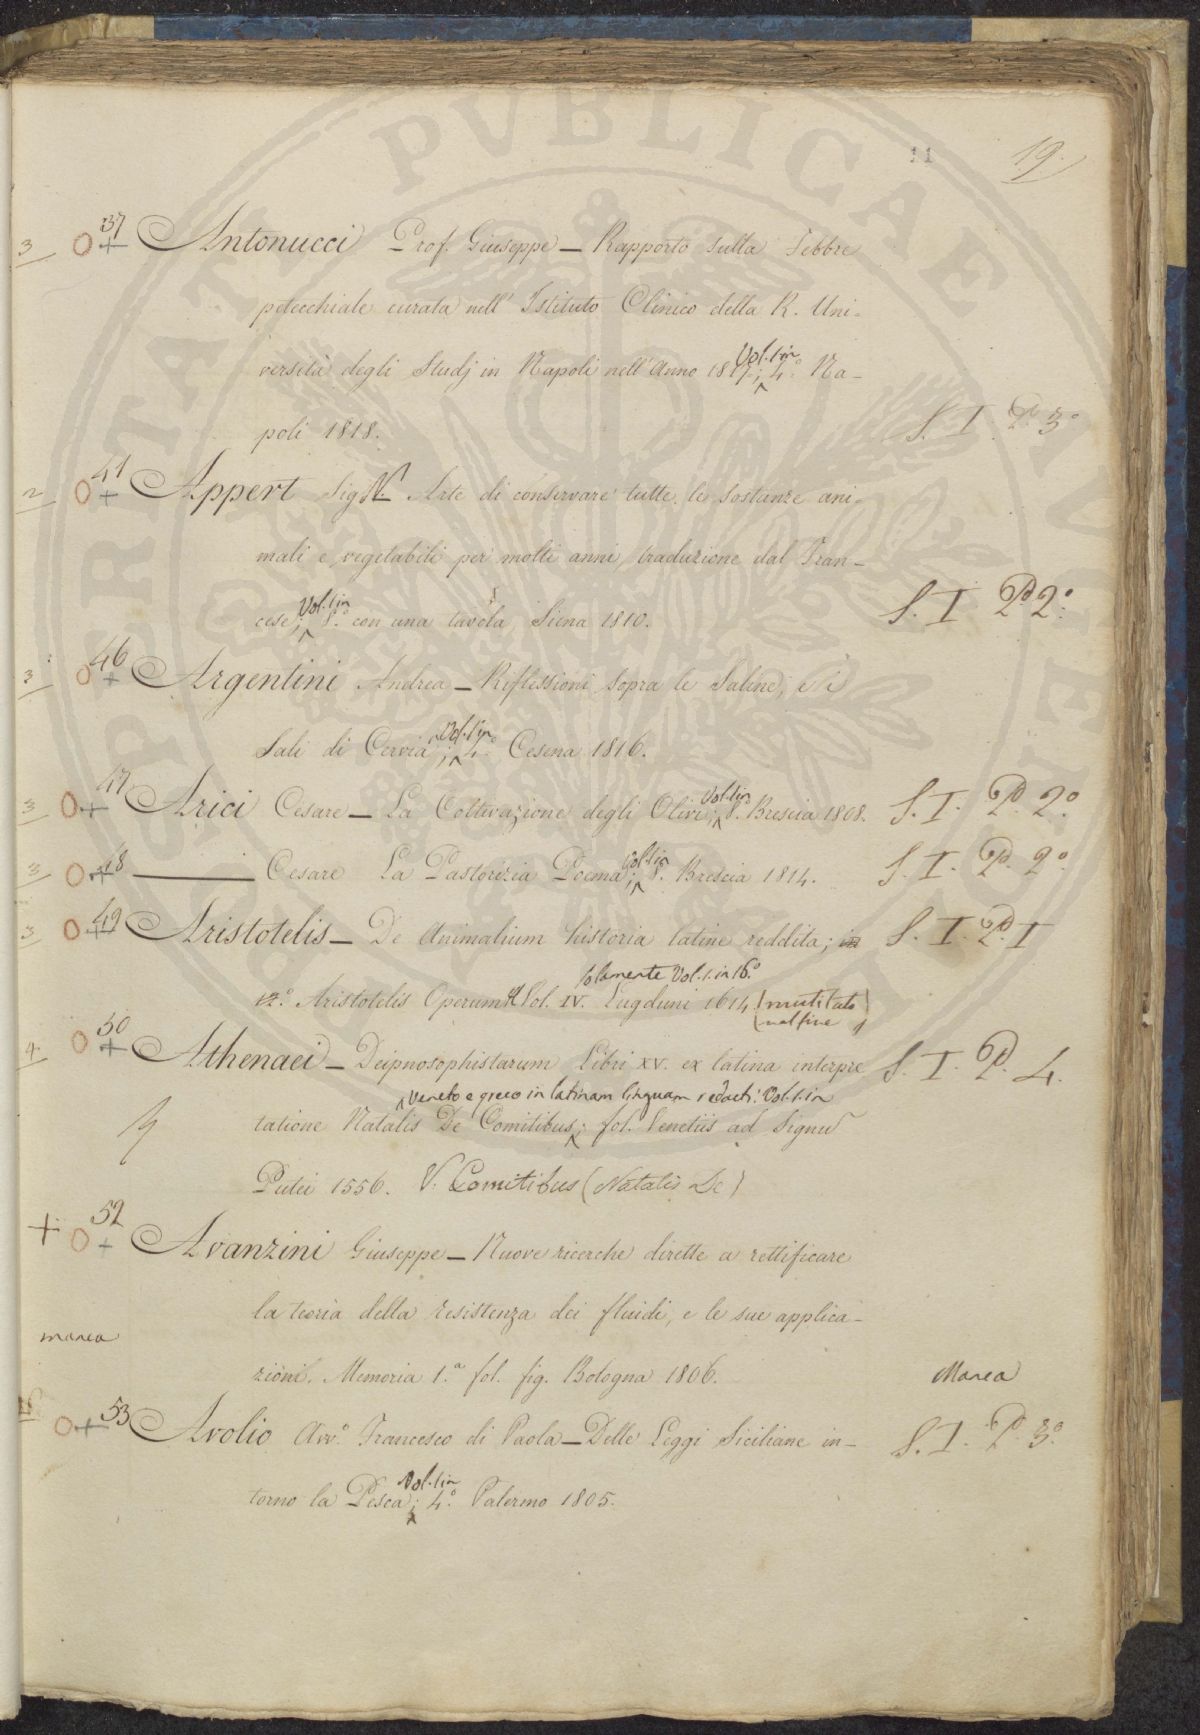 11
19.
3 37 Antonucci Prof. Giuseppe — Rapporto sulla Febbre
petecchiale curata nell' Istituto Clinico della R. Uni-
Vol. 1 in
versità degli Studj in Napoli nell'Anno 1817; 4.° Na-
poli 1818. S. I. P. 3°
2 41 Appert Sig. N. Arte di conservare tutte le sostanze ani-
mali e vegetabili per molti anni, traduzione dal Fran-
Vol. 1 in
cese; 8.° con una tavola Siena 1810. S. I. P. 2°.
3 46 Argentini Andrea — Riflessioni sopra le Saline, e i
Vol. 1 in
Sali di Cervia; 4.° Cesena 1816.
Vol. 1 in
3 47 Arici Cesare — La Coltivazione degli Olivi; 8.° Brescia 1808. S. I. P. 2°
Vol. 1 in
3 48 — Cesare La Pastorizia Poema; 8.° Brescia 1814. S. I. P. 2°
3 49 Aristotelis — De Animalium historia latine reddita; in S. I. P. I
solamente Vol. 1. in 16.°
12.° Aristotelis Operum Vol. IV. Lugduni 1614 (mutilato
nel fine)
4. 50 Athenaei — Deipnosophistarum Libri XV. ex latina interpre S. I. P. 4.
Veneto e greco in latinam linguam redacti: Vol. 1. in
tatione Natalis De Comitibus; fol. Venetiis ad Signū
Putei 1556. V. Comitibus (Natalis De)
+ 52 Avanzini Giuseppe — Nuove ricerche dirette a rettificare
la teoria della resistenza dei fluidi, e le sue applica-
manca
zioni. Memoria 1.ª fol. fig. Bologna 1806. Manca
53 Avolio Avv.° Francesco di Paola — Delle Leggi Siciliane in- S. I. P. 3°.
Vol. 1 in
torno la Pesca; 4.° Palermo 1805.